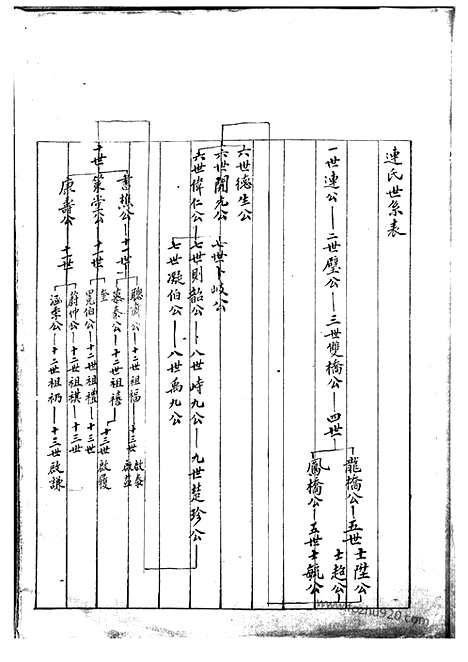 連氏世系表
一世連公—二世璧公—三世雙橋公—四世
龍橋公—五世士陞公
士超公
鳳橋公—五世士毓公
六世德生公
六世開先公—七世卜岐公
六世偉仁公—七世則韶公—八世時九公—九世楚珍公
七世凝伯公—八世禹九公
十世
書樵公—十一世
聰甫公—十二世祖福—十三世
啟泰
慕秦公—十二世祖禧
登
策堂公—十一世
昆伯公—十二世祖禮—十三世
十三世啟優
康壽公 十一世
蔚仲公—十二世祖祺—十三世
涵季公—十二世祖礽—十三世啟謙
www.fozhu920.com